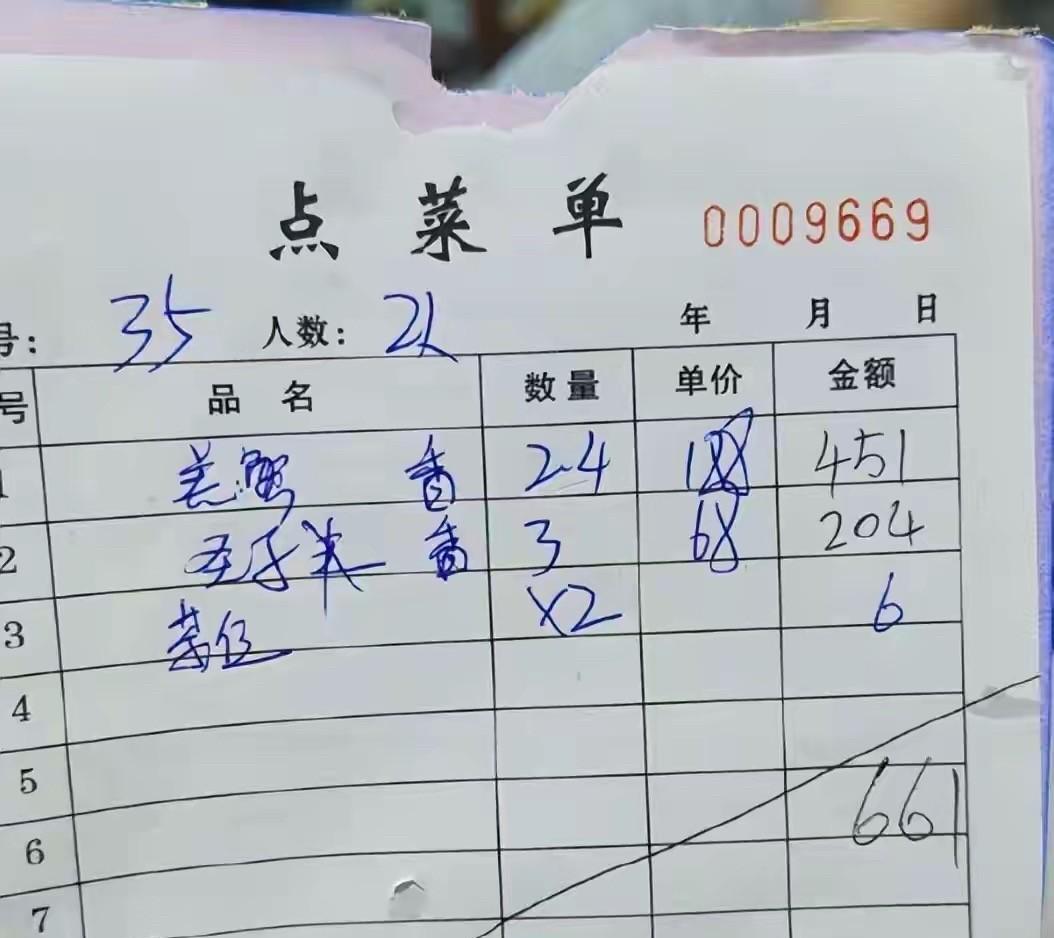 点菜单 0009669
号: 35 人数: 2人 年 月 日
号 品名 数量 单价 金额
1 羔蟹 香 2.4 188 451
2 香 3 68 204
3 茶位 x2 6
4
5
661
6
7